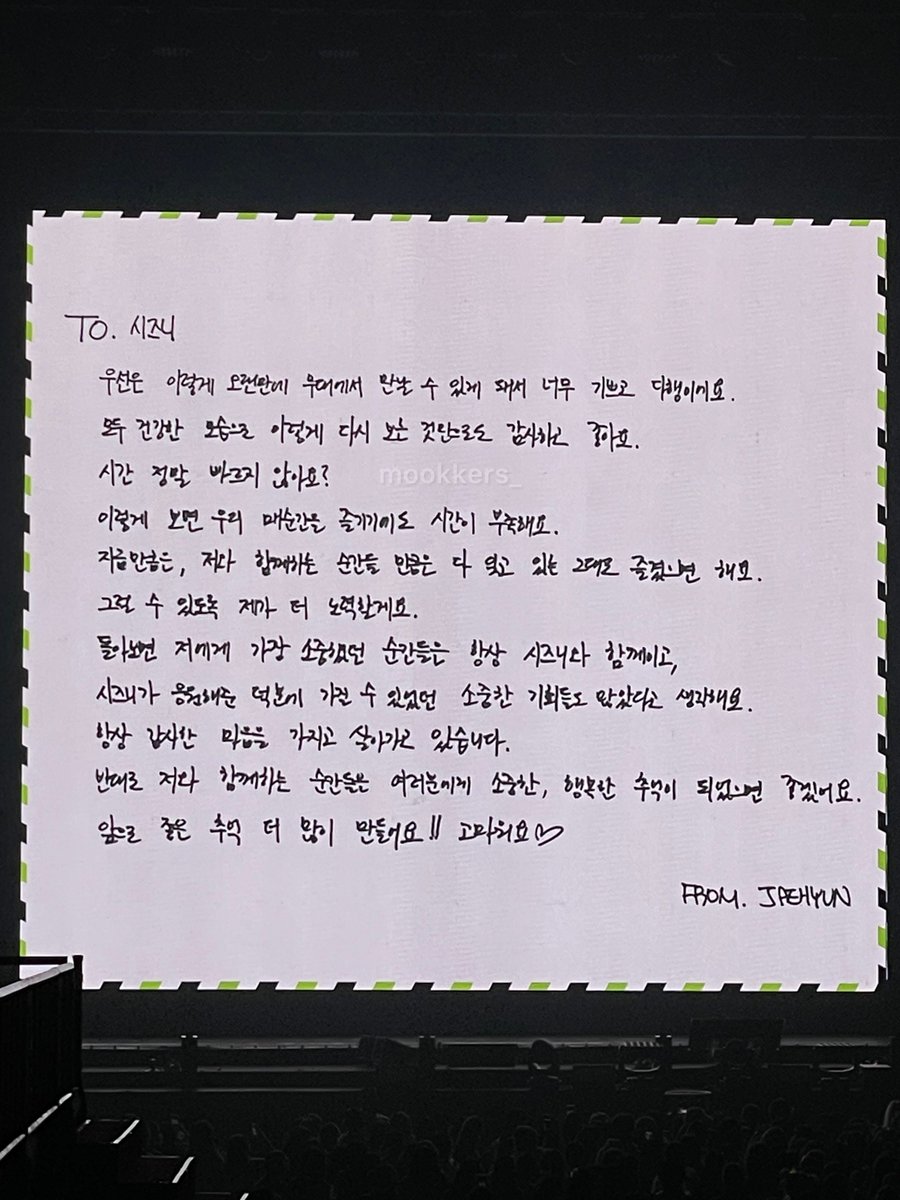 TO. 시즈니
우선은 이렇게 오랜만에 무대에서 만날 수 있게 돼서 너무 기쁘고 다행이에요.
모두 건강한 모습으로 이렇게 다시 보는 것만으로도 감사하고 좋아요.
시간 정말 빠르지 않아요?
mookkers_
이렇게 보면 우리 매순간을 즐기기에도 시간이 부족해요.
지금만큼은, 저와 함께하는 순간들 만큼은 다 잊고 있는 그대로 즐겼으면 해요.
그럴 수 있도록 제가 더 노력할게요.
돌아보면 저에게 가장 소중했던 순간들은 항상 시즈니와 함께이고,
시즈니가 응원해준 덕분에 가질 수 있었던 소중한 기회들도 많았다고 생각해요.
항상 감사한 마음을 가지고 살아가고 있습니다.
반대로 저와 함께하는 순간들은 여러분에게 소중한, 행복한 추억이 되었으면 좋겠어요.
앞으로 좋은 추억 더 많이 만들어요!! 고마워요♡
FROM. JAEHYUN